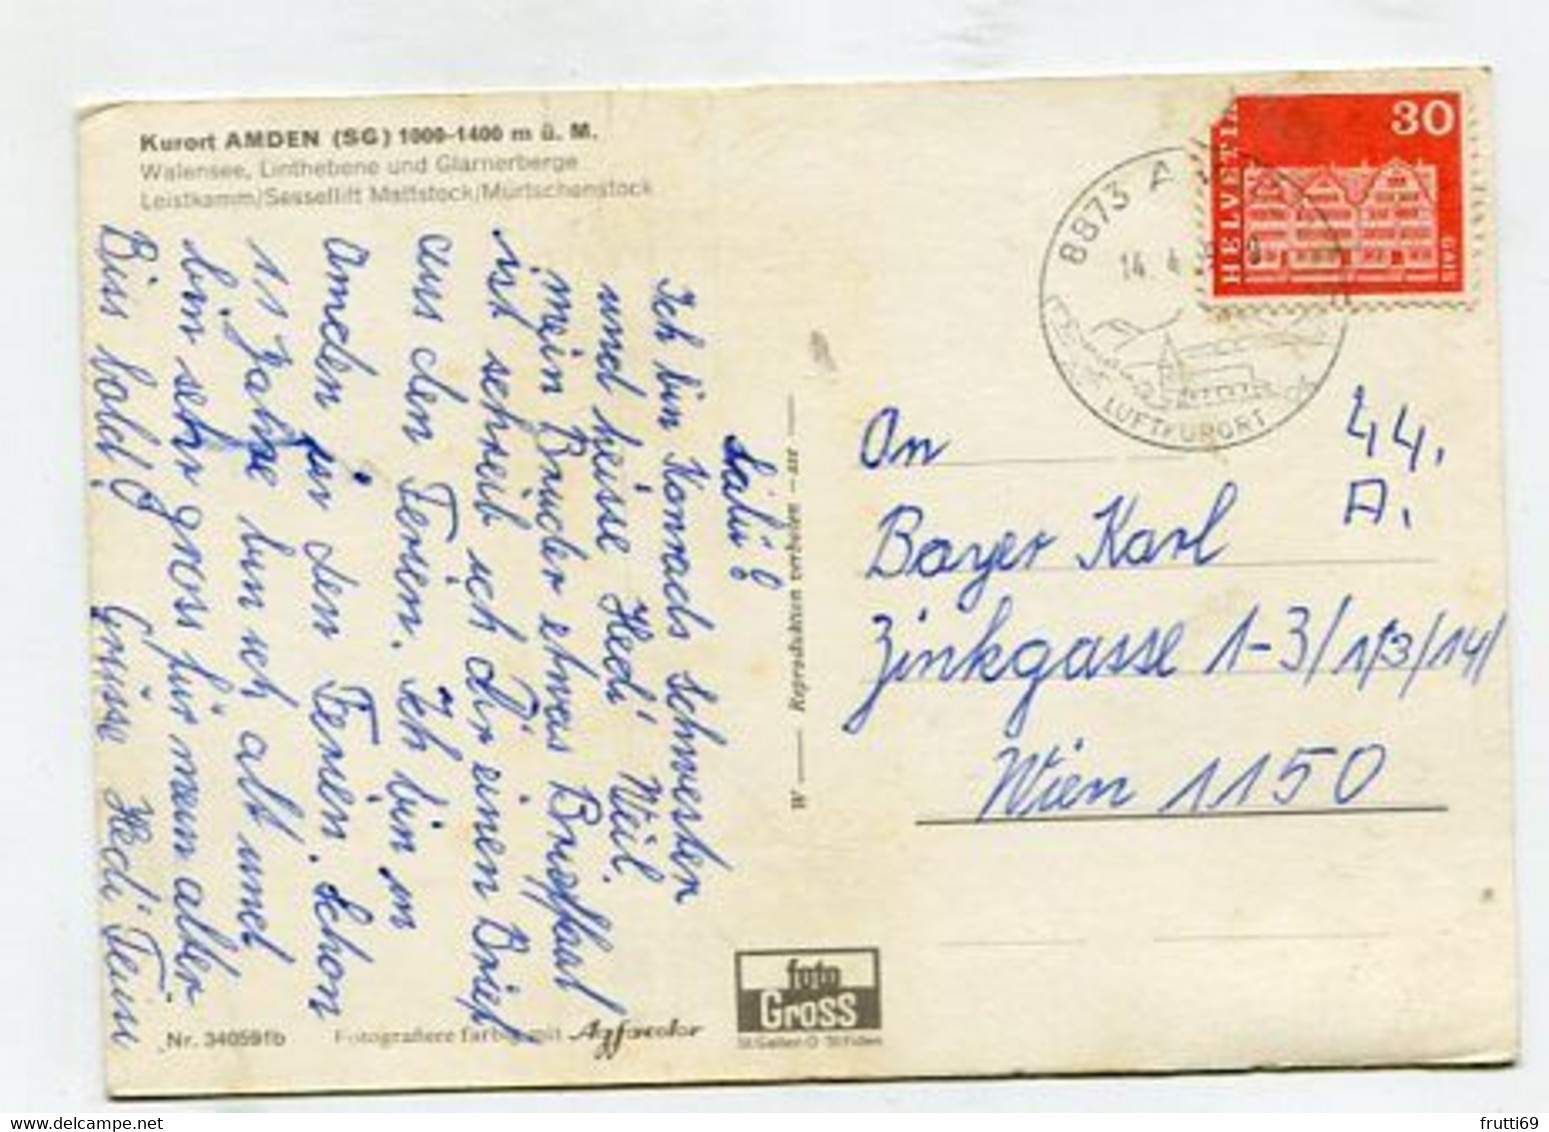 Kurort AMDEN (SG) 1000-1400 m ü. M.
Walensee, Linthebene und Glarnerberge
Leistkamm/Sessellift Mattstock/Mürtschenstock
Salü!
Ich bin Konrads Schwester
und heisse Hedi Weil.
mein Bruder etwas Brieffaul
ist schreib ich Dir einen Brief
aus den Ferien. Ich bin in
Amden in den Ferien. Schon
11 Jahre bin ich alt und
bin sehr gross für mein alter
Bius bald!
Grüsse Hedi
Nr. 340591b
Fotografiere farbig mit Agfacolor
foto
GROSS
St.Gallen O St.Fiden
W — Reproduktion verboten — are
8873 A
14. 4.
LUFTKURORT
HELVETIA
30
GAIS
44.
A.
An
Bayer Karl
Zinkgasse 1-3/1/3/14/
Wien 1150
frutti69